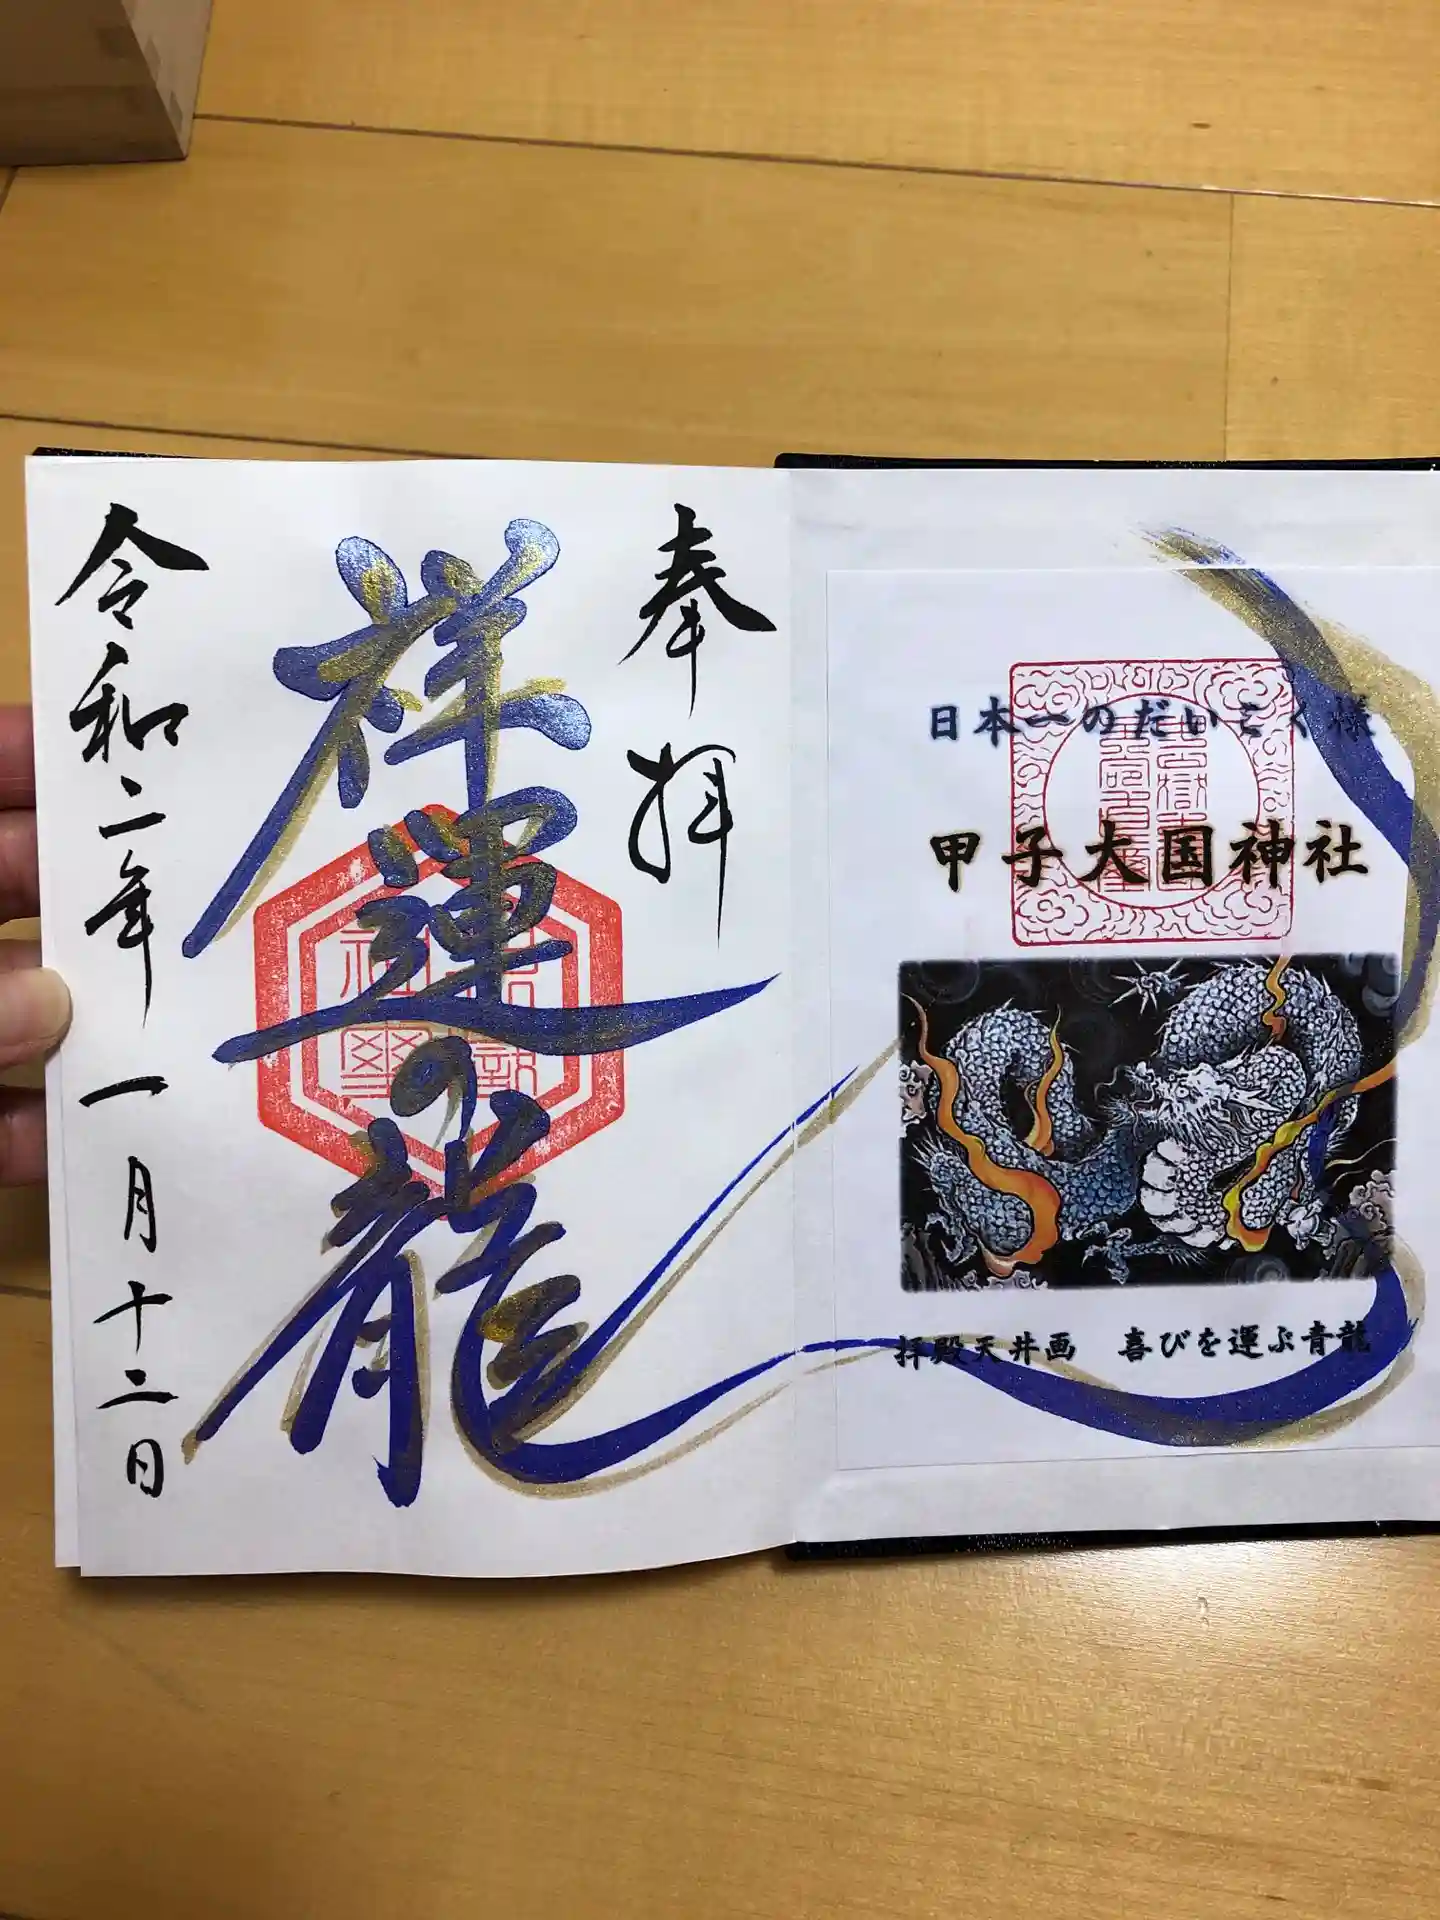 日本一のだいこく様
甲子大国神社
拝殿天井画　喜びを運ぶ青龍
奉拝
祥運の龍
令和二年一月十二日